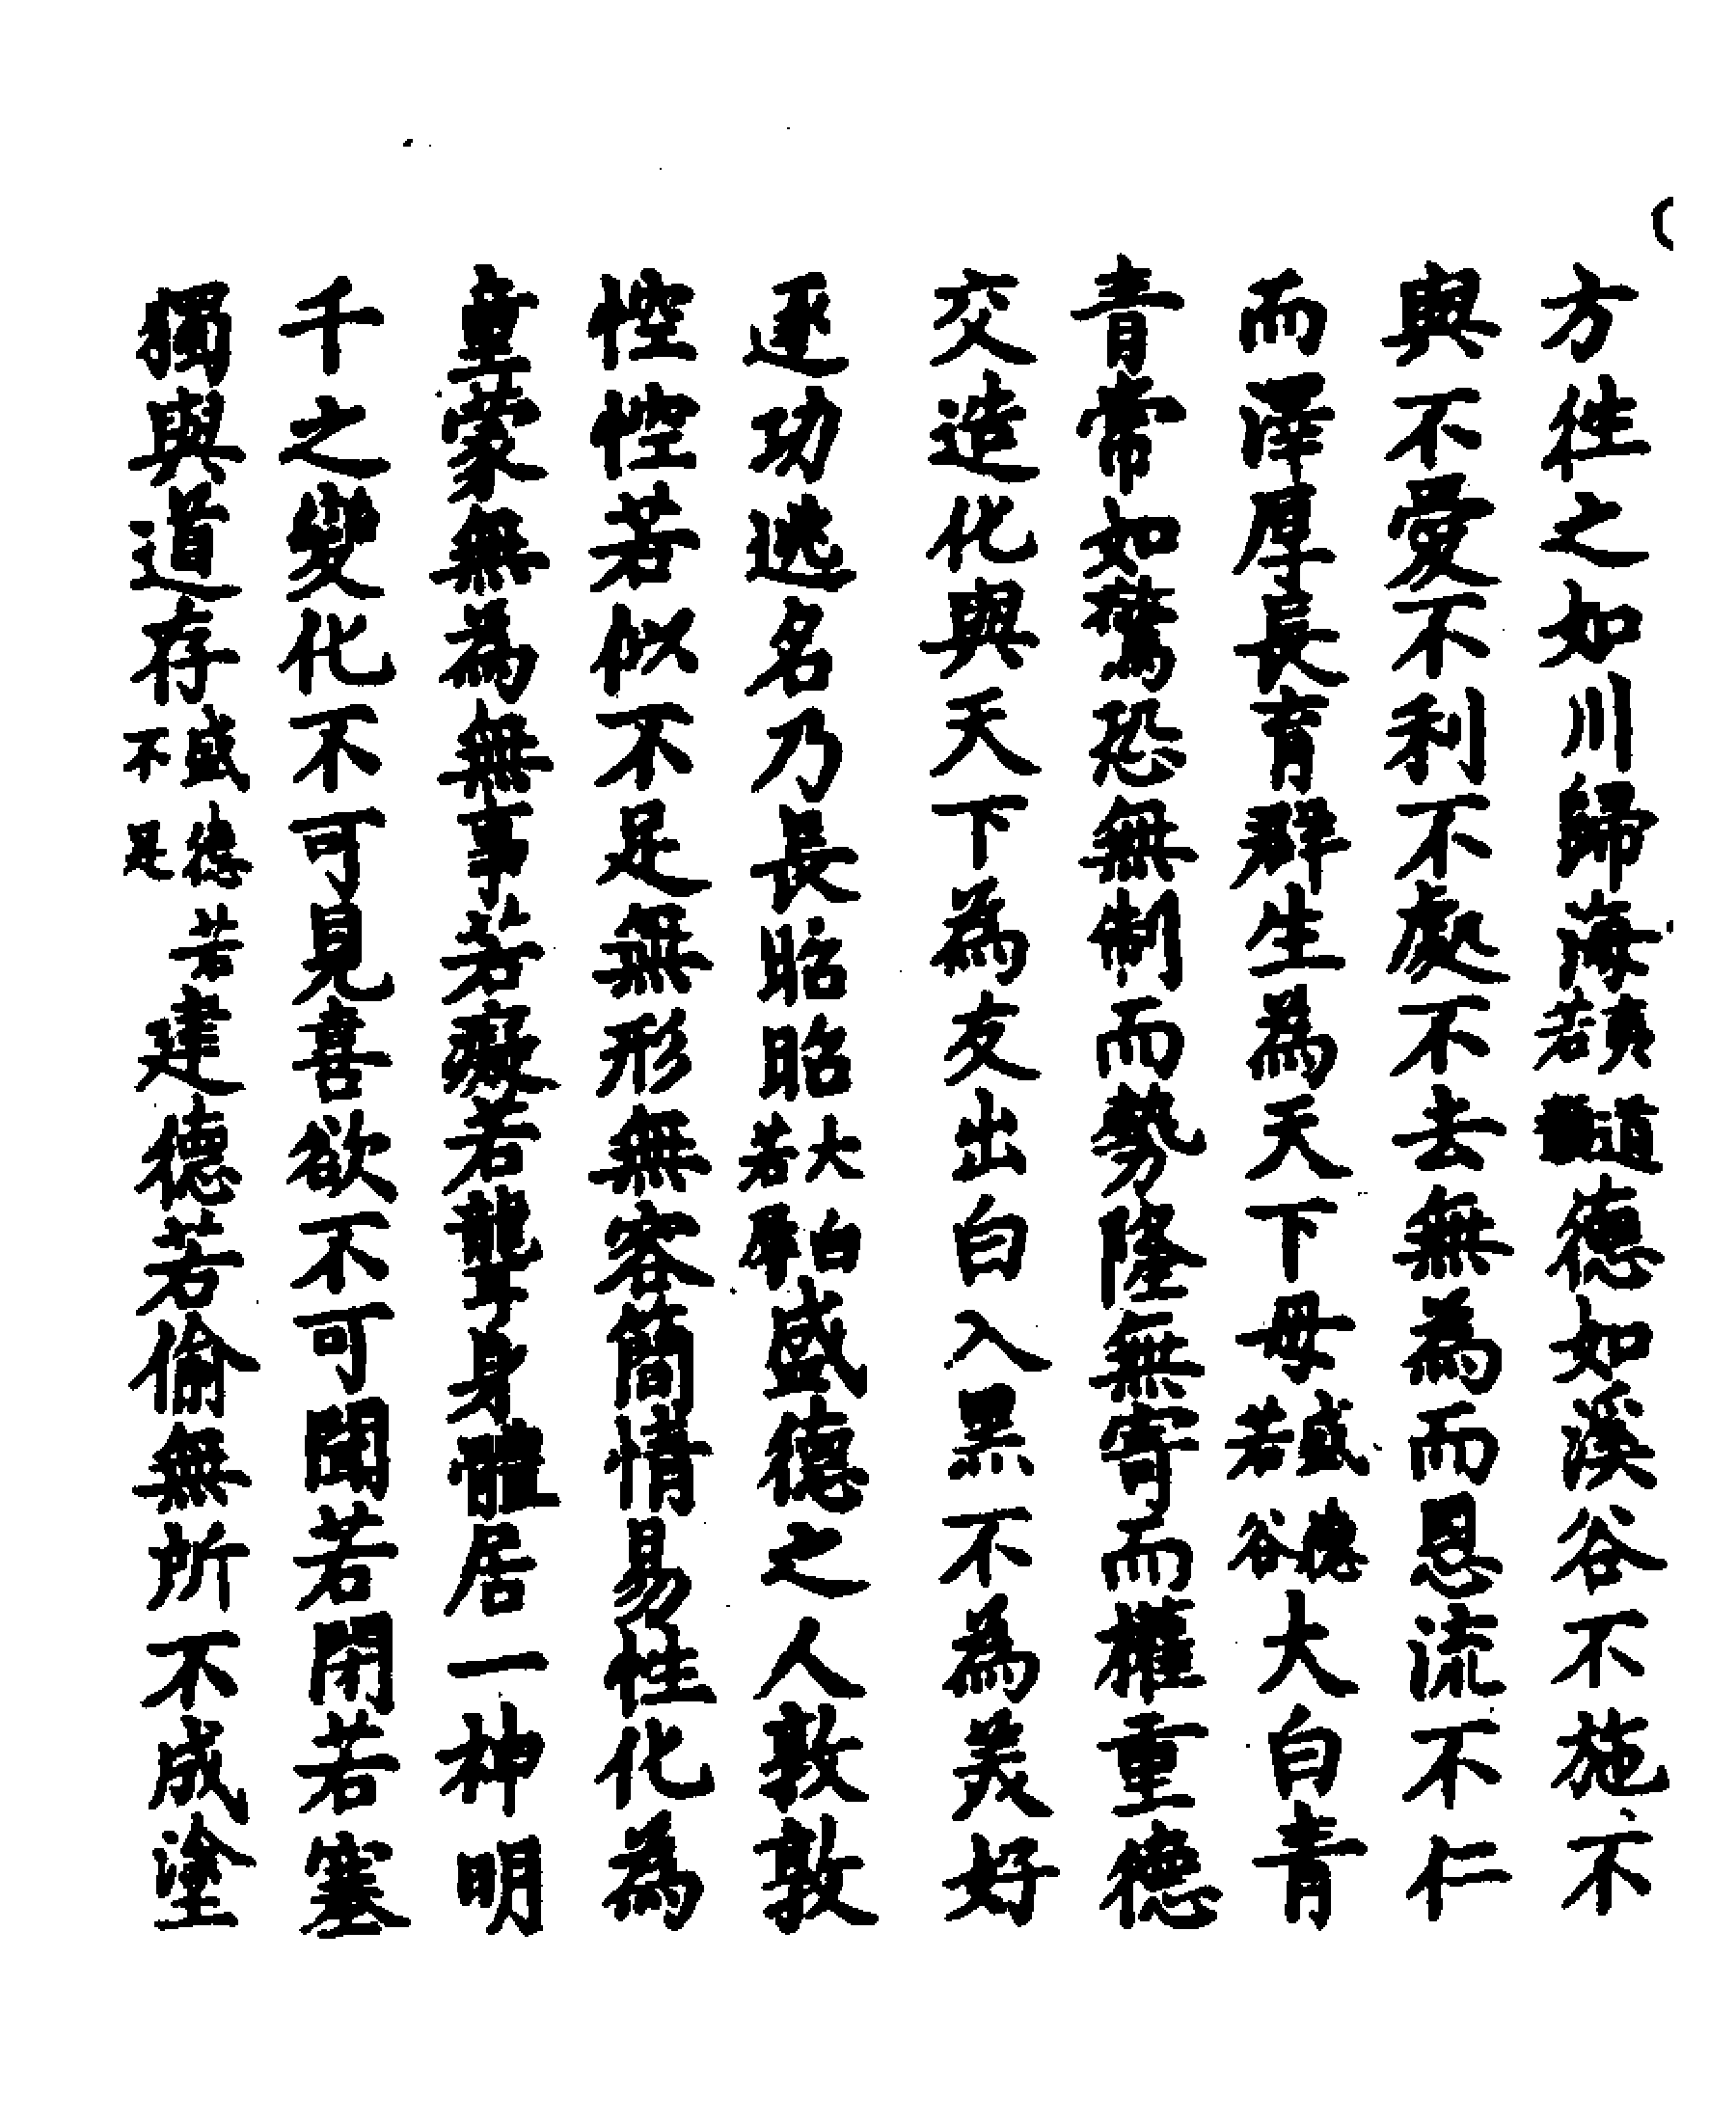 方徃之如川歸海夷道若類德如溪谷不施不
與不愛不利不處不去無為而恩流不仁
而澤厚長育群生為天下母盛德若谷大白青
青常如驚恐無制而勢隆無寄而權重德
交造化與天下為友出白入黑不為美好
逐功逃名乃長昭昭大白若辱盛德之人敦敦
悾悾若似不足無形無容簡情易性化為
童蒙無為無事若癡若聾身體居一神明
千之變化不可見喜欲不可聞若閉若塞
獨與道存盛德若不足建德若偷無所不成塗